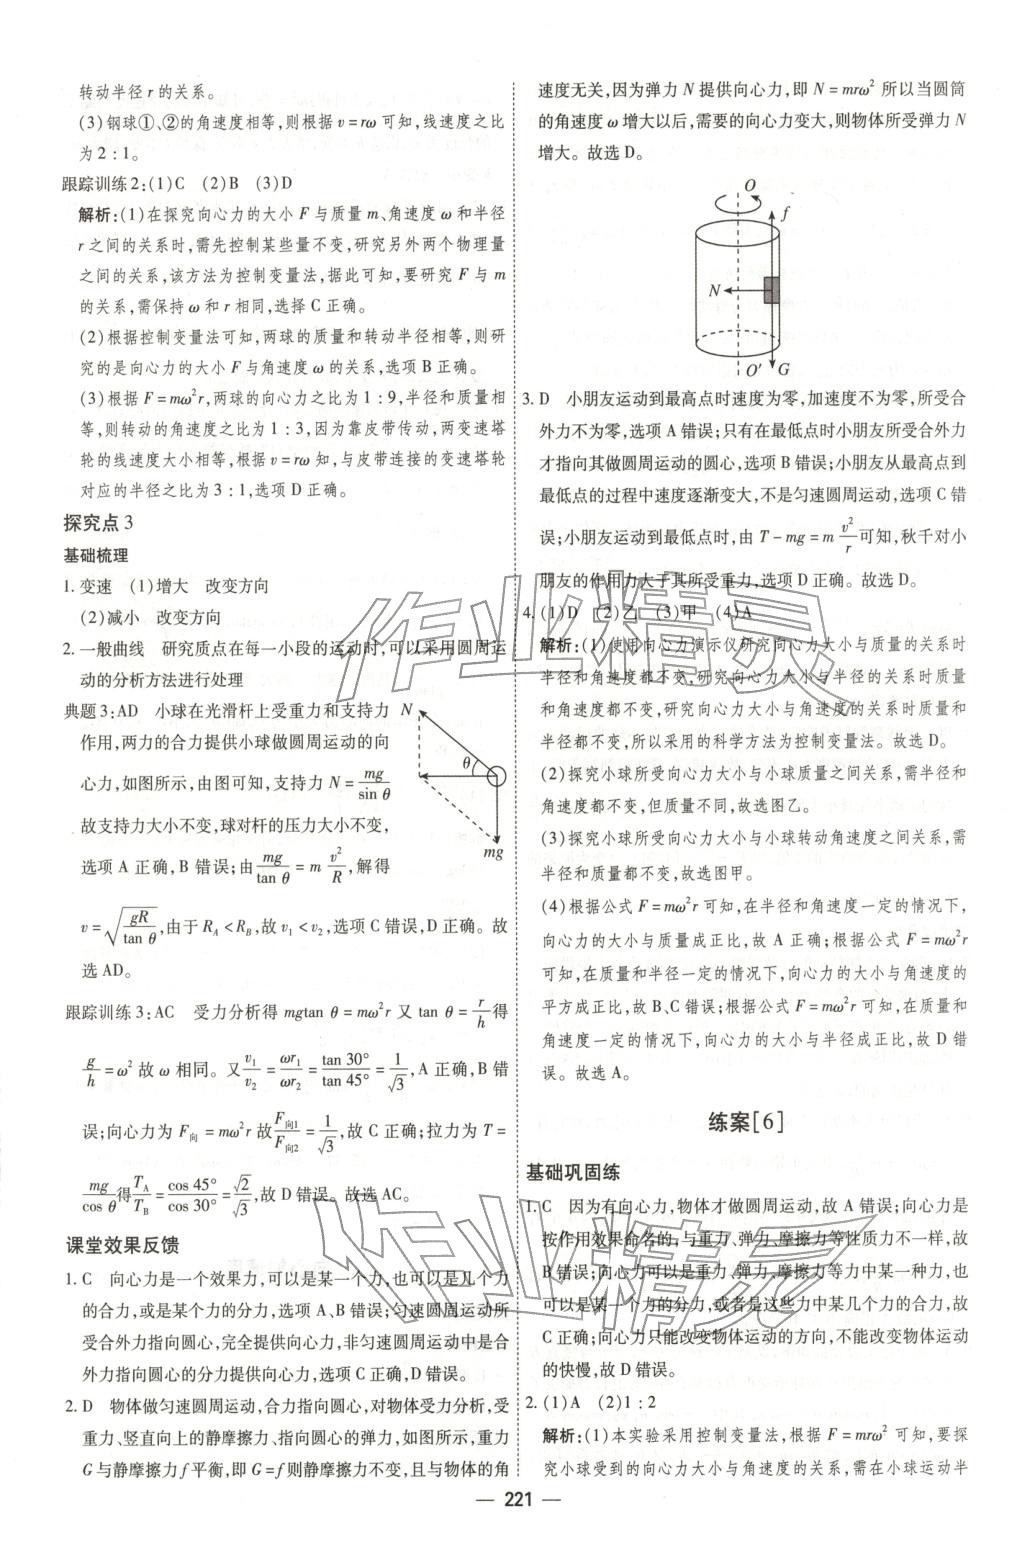 转动半径 r 的关系。
(3)钢球①、②的角速度相等,则根据 v = rω 可知,线速度之比
为 2 : 1。
跟踪训练 2:(1)C (2)B (3)D
解析:(1)在探究向心力的大小 F 与质量 m、角速度 ω 和半径
r 之间的关系时,需先控制某些量不变,研究另外两个物理量
之间的关系,该方法为控制变量法,据此可知,要研究 F 与 m
的关系,需保持 ω 和 r 相同,选择 C 正确。
(2)根据控制变量法可知,两球的质量和转动半径相等,则研
究的是向心力的大小 F 与角速度 ω 的关系,选项 B 正确。
(3)根据 F = mω²r,两球的向心力之比为 1 : 9,半径和质量相
等,则转动的角速度之比为 1 : 3,因为靠皮带传动,两变速塔
轮的线速度大小相等,根据 v = rω 知,与皮带连接的变速塔轮
对应的半径之比为 3 : 1,选项 D 正确。
探究点 3
基础梳理
1. 变速 (1)增大 改变方向
(2)减小 改变方向
2. 一般曲线 研究质点在每一小段的运动时,可以采用圆周运
动的分析方法进行处理
典题 3:AD 小球在光滑杆上受重力和支持力
作用,两力的合力提供小球做圆周运动的向
心力,如图所示,由图可知,支持力 N = mg/sin θ
故支持力大小不变,球对杆的压力大小不变,
选项 A 正确,B 错误;由 mg/tan θ = m v²/R,解得
v = √(gR/tan θ),由于 R_A < R_B,故 v₁ < v₂,选项 C 错误,D 正确。故
选 AD。
N
θ
mg
跟踪训练 3:AC 受力分析得 mgtan θ = mω²r 又 tan θ = r/h 得
g/h = ω² 故 ω 相同。又 v₁/v₂ = ωr₁/ωr₂ = tan 30°/tan 45° = 1/√3,A 正确,B 错
误;向心力为 F向 = mω²r 故 F向1/F向2 = 1/√3,故 C 正确;拉力为 T =
mg/cos θ 得 T_A/T_B = cos 45°/cos 30° = √2/√3,故 D 错误。故选 AC。
课堂效果反馈
1. C 向心力是一个效果力,可以是某一个力,也可以是几个力
的合力,或是某个力的分力,选项 A、B 错误;匀速圆周运动所
受合外力指向圆心,完全提供向心力,非匀速圆周运动中是合
外力指向圆心的分力提供向心力,选项 C 正确,D 错误。
2. D 物体做匀速圆周运动,合力指向圆心,对物体受力分析,受
重力、竖直向上的静摩擦力、指向圆心的弹力,如图所示,重力
G 与静摩擦力 f 平衡,即 G = f 则静摩擦力不变,且与物体的角
速度无关,因为弹力 N 提供向心力,即 N = mrω² 所以当圆筒
的角速度 ω 增大以后,需要的向心力变大,则物体所受弹力 N
增大。故选 D。
O
f
N
O′
G
3. D 小朋友运动到最高点时速度为零,加速度不为零,所受合
外力不为零,选项 A 错误;只有在最低点时小朋友所受合外力
才指向其做圆周运动的圆心,选项 B 错误;小朋友从最高点到
最低点的过程中速度逐渐变大,不是匀速圆周运动,选项 C 错
误;小朋友运动到最低点时,由 T − mg = m v²/r 可知,秋千对小
朋友的作用力大于其所受重力,选项 D 正确。故选 D。
4. (1)D (2)乙 (3)甲 (4)A
解析:(1)使用向心力演示仪研究向心力大小与质量的关系时
半径和角速度都不变,研究向心力大小与半径的关系时质量
和角速度都不变,研究向心力大小与角速度的关系时质量和
半径都不变,所以采用的科学方法为控制变量法。故选 D。
(2)探究小球所受向心力大小与小球质量之间关系,需半径和
角速度都不变,但质量不同,故选图乙。
(3)探究小球所受向心力大小与小球转动角速度之间关系,需
半径和质量都不变,故选图甲。
(4)根据公式 F = mω²r 可知,在半径和角速度一定的情况下,
向心力的大小与质量成正比,故 A 正确;根据公式 F = mω²r
可知,在质量和半径一定的情况下,向心力的大小与角速度的
平方成正比,故 B、C 错误;根据公式 F = mω²r 可知,在质量和
角速度一定的情况下,向心力的大小与半径成正比,故 D 错
误。故选 A。
练案[6]
基础巩固练
1. C 因为有向心力,物体才做圆周运动,故 A 错误;向心力是
按作用效果命名的,与重力、弹力、摩擦力等性质力不一样,故
B 错误;向心力可以是重力、弹力、摩擦力等力中某一种力,也
可以是某一个力的分力,或者是这些力中某几个力的合力,故
C 正确;向心力只能改变物体运动的方向,不能改变物体运动
的快慢,故 D 错误。
2. (1)A (2)1 : 2
解析:(1)本实验采用控制变量法,根据 F = mrω² 可知,要探
究小球受到的向心力大小与角速度的关系,需在小球运动半
— 221 —
作业精灵
作业精灵